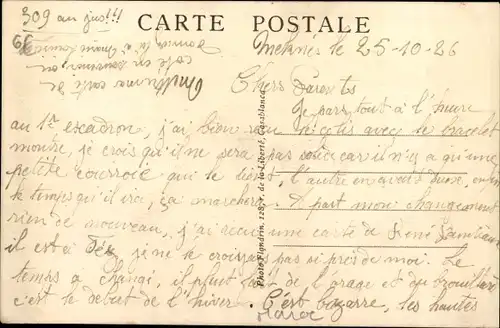 309 au jus !!!
CARTE POSTALE
Meknès le 25-10-26
Chers Parents
Je pars tout à l'heure
au 1er escadron, j'ai bien reçu le colis avec le bracelet
montre, je crois qu'il ne sera pas volé car il n'y a qu'une
petite courroie qui le tient, l'autre en avait deux, enfin
le temps qu'il ira, ça marchera. A part mon changement
rien de nouveau, j'ai reçu une carte de René
il est à je ne le croyais pas si près de moi. Le
temps a changé, il pleut de l'orage et du brouillard
c'est le début de l'hiver. C'est bizarre, les hautes
Maroc
Photo Flandrin, 128, r. de la Liberté, Casablanca